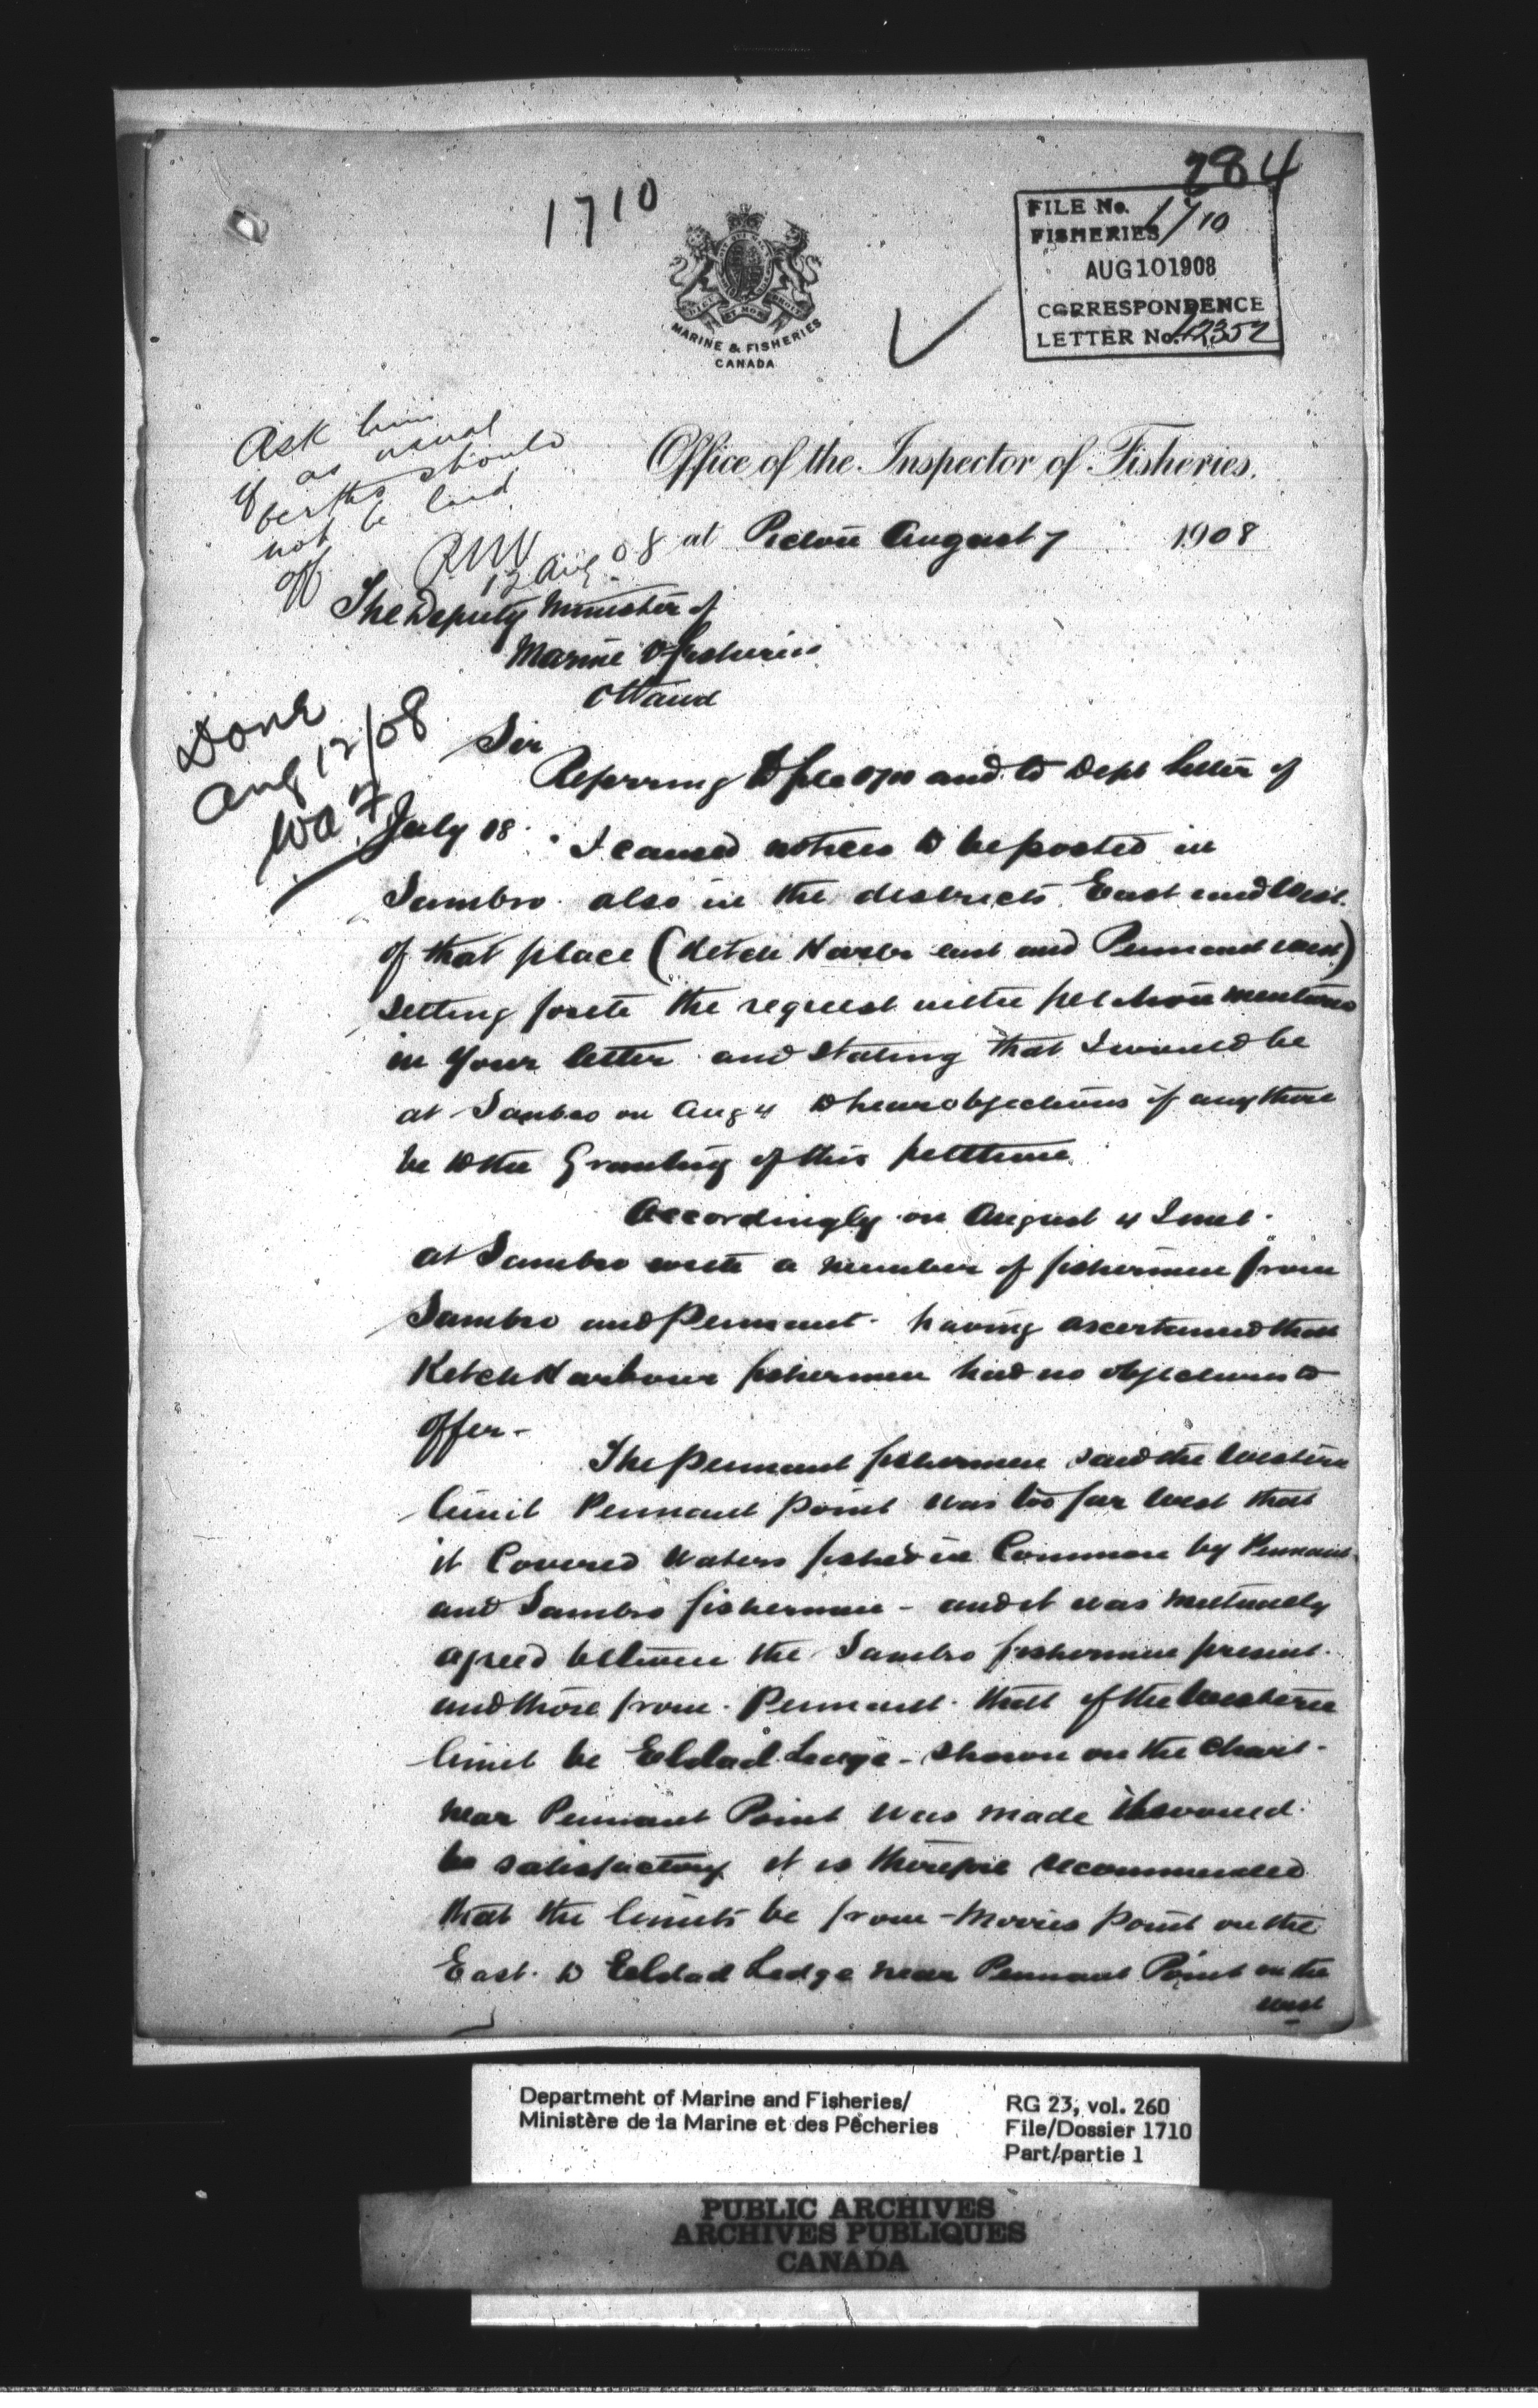 784
1710
FILE No.
FISHERIES 1710
AUG 10 1908
CORRESPONDENCE
LETTER No. 42352
DIEU ET MON DROIT
MARINE & FISHERIES
CANADA
Ask him
if as usual
berths should
not be laid
off
RNV
12 Aug 08
Office of the Inspector of Fisheries.
at Pictou August 7 1908
The Deputy Minister of
Marine & Fisheries
Ottawa
Done
Aug 12/08
Sir
Referring to file 1710 and to Dept letter of
July 08 I caused notices to be posted in
Sambro also in the districts East and West
of that place (Ketch Harbr east and Pennant west)
setting forth the request in the petition mentioned
in your letter and stating that I would be
at Sambro on Aug 4 to hear objections if any there
be to the Granting of this petition.
Accordingly on August 4 I met
at Sambro with a number of fishermen from
Sambro and Pennant having ascertained that
Ketch Harbour fishermen had no objections to
offer -
The Pennant fishermen said the Western
limit Pennant Point was too far West that
it Covered waters fished in Common by Pennant
and Sambro fishermen - and it was mutually
agreed between the Sambro fishermen present
and those from Pennant that if the Western
limit be Eldad Ledge - shown on the Chart -
near Pennant Point was made it would
be satisfactory it is therefore recommended
that the limits be from Morris Point on the
East to Eldad Ledge near Pennant Point on the
West
Department of Marine and Fisheries/
Ministère de la Marine et des Pêcheries
RG 23, vol. 260
File/Dossier 1710
Part/partie 1
PUBLIC ARCHIVES
ARCHIVES PUBLIQUES
CANADA